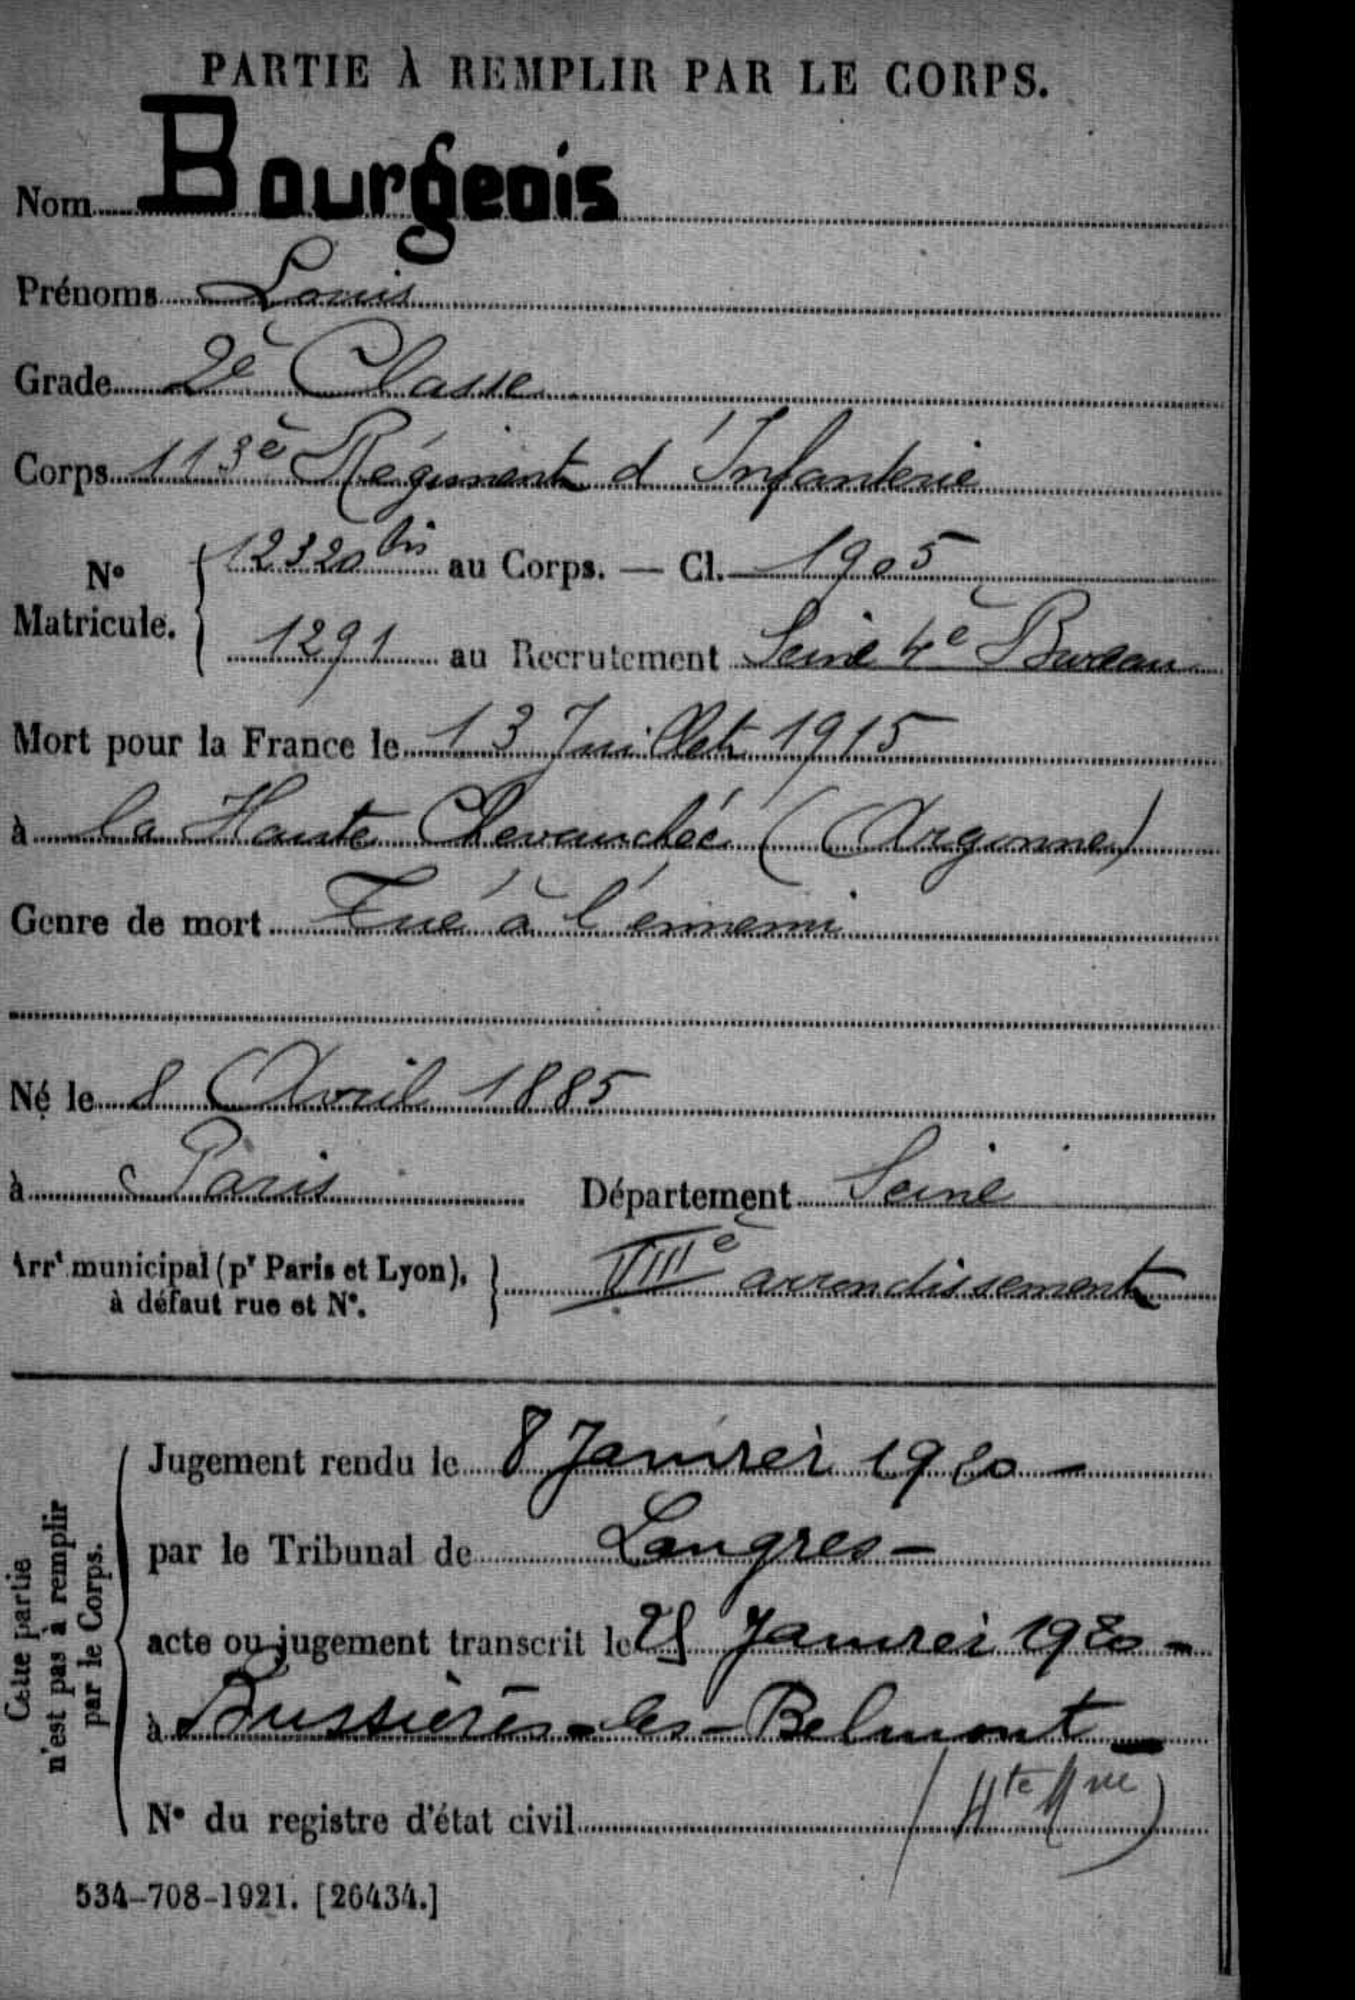 PARTIE À REMPLIR PAR LE CORPS.
Nom Bourgeois
Prénoms Louis
Grade 2è Classe
Corps 113è Régiment d'Infanterie
N° Matricule. { 12320 bis au Corps. — Cl. 1905
1291 au Recrutement Seine 4è Bureau
Mort pour la France le 13 Juillet 1915
à la Haute Chevauchée (Argonne)
Genre de mort Tué à l'ennemi
Né le 8 Avril 1885
à Paris Département Seine
Arrt municipal (pr Paris et Lyon), } VIIIè arrondissement
à défaut rue et N°.
Cette partie n'est pas à remplir par le Corps.
Jugement rendu le 8 Janvier 1920 -
par le Tribunal de Langres -
acte ou jugement transcrit le Janvier 1920 -
à Bussières-les-Belmont -
N° du registre d'état civil (Hte Mne)
534-708-1921. [26434.]